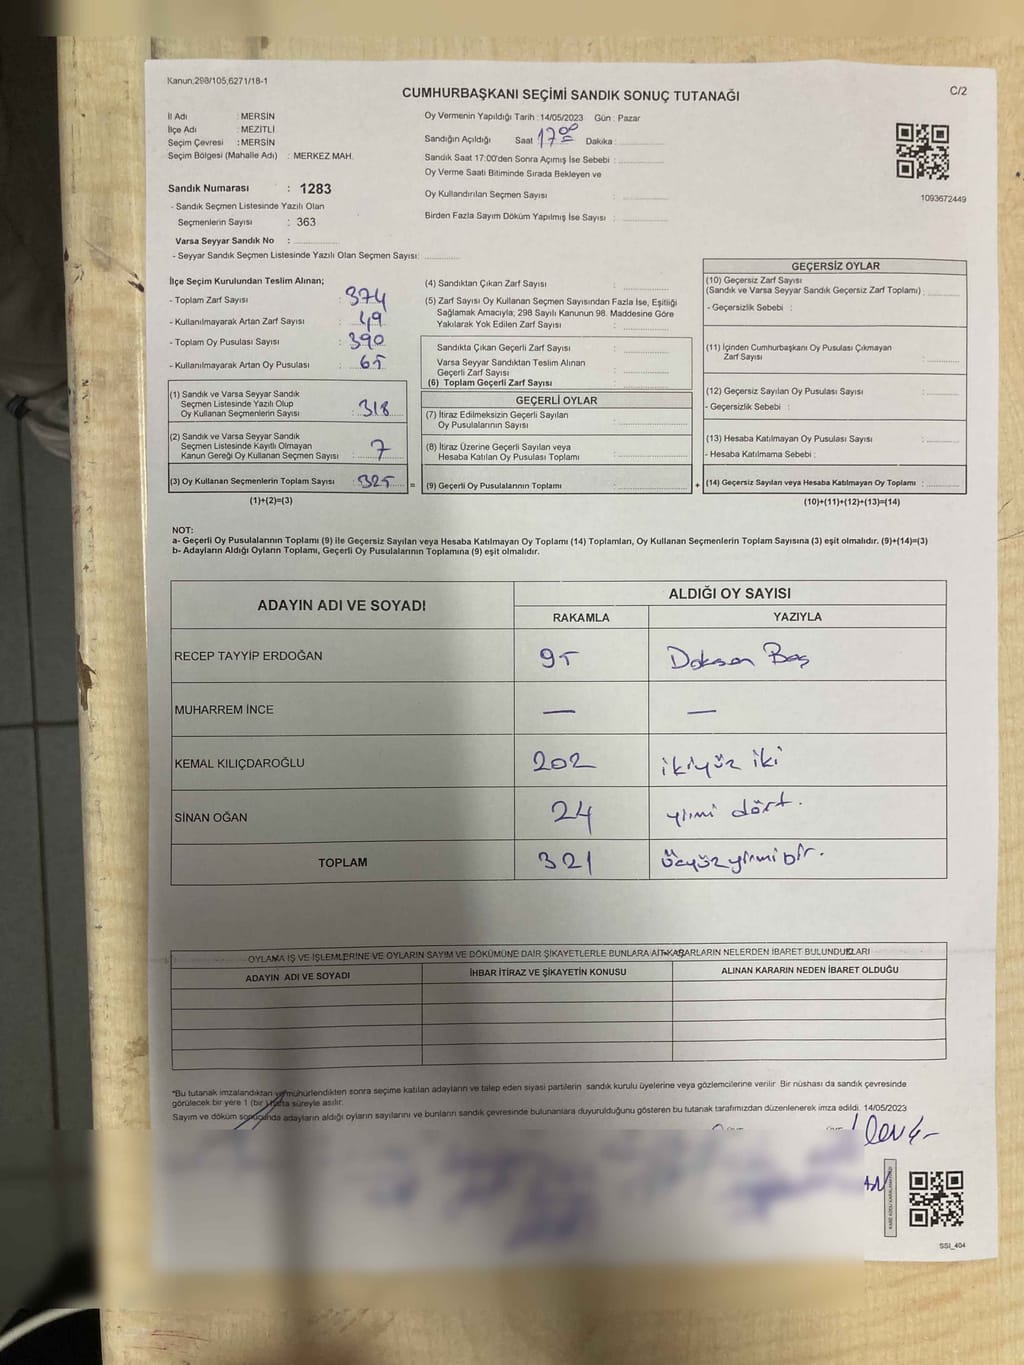 Kanun:298/105,6271/18-1
CUMHURBAŞKANI SEÇİMİ SANDIK SONUÇ TUTANAĞI
C/2
İl Adı : MERSİN
İlçe Adı : MEZİTLİ
Seçim Çevresi : MERSİN
Seçim Bölgesi (Mahalle Adı) : MERKEZ MAH.
Oy Vermenin Yapıldığı Tarih : 14/05/2023 Gün : Pazar
Sandığın Açıldığı Saat 17 00 Dakika :
Sandık Saat 17:00'den Sonra Açımış İse Sebebi :
Oy Verme Saati Bitiminde Sırada Bekleyen ve
Oy Kullandırılan Seçmen Sayısı :
Birden Fazla Sayım Döküm Yapılmış İse Sayısı :
1093672449
Sandık Numarası : 1283
- Sandık Seçmen Listesinde Yazılı Olan
Seçmenlerin Sayısı : 363
Varsa Seyyar Sandık No :
- Seyyar Sandık Seçmen Listesinde Yazılı Olan Seçmen Sayısı:
İlçe Seçim Kurulundan Teslim Alınan;
- Toplam Zarf Sayısı : 374
- Kullanılmayarak Artan Zarf Sayısı : 49
- Toplam Oy Pusulası Sayısı : 390
- Kullanılmayarak Artan Oy Pusulası : 65
(1) Sandık ve Varsa Seyyar Sandık
Seçmen Listesinde Yazılı Olup
Oy Kullanan Seçmenlerin Sayısı : 318
(2) Sandık ve Varsa Seyyar Sandık
Seçmen Listesinde Kayıtlı Olmayan
Kanun Gereği Oy Kullanan Seçmen Sayısı : 7
(3) Oy Kullanan Seçmenlerin Toplam Sayısı : 325 =
(1)+(2)=(3)
(4) Sandıktan Çıkan Zarf Sayısı :
(5) Zarf Sayısı Oy Kullanan Seçmen Sayısından Fazla İse, Eşitliği
Sağlamak Amacıyla; 298 Sayılı Kanunun 98. Maddesine Göre
Yakılarak Yok Edilen Zarf Sayısı :
Sandıkta Çıkan Geçerli Zarf Sayısı :
Varsa Seyyar Sandıktan Teslim Alınan
Geçerli Zarf Sayısı :
(6) Toplam Geçerli Zarf Sayısı :
GEÇERLİ OYLAR
(7) İtiraz Edilmeksizin Geçerli Sayılan
Oy Pusulalarının Sayısı :
(8) İtiraz Üzerine Geçerli Sayılan veya
Hesaba Katılan Oy Pusulası Toplamı :
(9) Geçerli Oy Pusulalarının Toplamı : +
GEÇERSİZ OYLAR
(10) Geçersiz Zarf Sayısı
(Sandık ve Varsa Seyyar Sandık Geçersiz Zarf Toplamı) :
- Geçersizlik Sebebi :
(11) İçinden Cumhurbaşkanı Oy Pusulası Çıkmayan
Zarf Sayısı :
(12) Geçersiz Sayılan Oy Pusulası Sayısı :
- Geçersizlik Sebebi :
(13) Hesaba Katılmayan Oy Pusulası Sayısı :
- Hesaba Katılmama Sebebi :
(14) Geçersiz Sayılan veya Hesaba Katılmayan Oy Toplamı :
(10)+(11)+(12)+(13)=(14)
NOT:
a- Geçerli Oy Pusulalarının Toplamı (9) ile Geçersiz Sayılan veya Hesaba Katılmayan Oy Toplamı (14) Toplamları, Oy Kullanan Seçmenlerin Toplam Sayısına (3) eşit olmalıdır. (9)+(14)=(3)
b- Adayların Aldığı Oyların Toplamı, Geçerli Oy Pusulalarının Toplamına (9) eşit olmalıdır.
ADAYIN ADI VE SOYADI
ALDIĞI OY SAYISI
RAKAMLA YAZIYLA
RECEP TAYYİP ERDOĞAN 95 Doksan Beş
MUHARREM İNCE — —
KEMAL KILIÇDAROĞLU 202 ikiyüz iki
SİNAN OĞAN 24 yirmi dört.
TOPLAM 321 üçyüzyirmibir.
OYLAMA İŞ VE İŞLEMLERİNE VE OYLARIN SAYIM VE DÖKÜMÜNE DAİR ŞİKAYETLERLE BUNLARA AİT KARARLARIN NELERDEN İBARET BULUNDUKLARI
ADAYIN ADI VE SOYADI İHBAR İTİRAZ VE ŞİKAYETİN KONUSU ALINAN KARARIN NEDEN İBARET OLDUĞU
*Bu tutanak imzalandıktan ve mühürlendikten sonra seçime katılan adayların ve talep eden siyasi partilerin sandık kurulu üyelerine veya gözlemcilerine verilir. Bir nüshası da sandık çevresinde
görülecek bir yere 1 (bir) hafta süreyle asılır.
Sayım ve döküm sonucunda adayların aldığı oyların sayılarını ve bunların sandık çevresinde bulunanlara duyurulduğunu gösteren bu tutanak tarafımızdan düzenlenerek imza edildi. 14/05/2023
SSİ_404